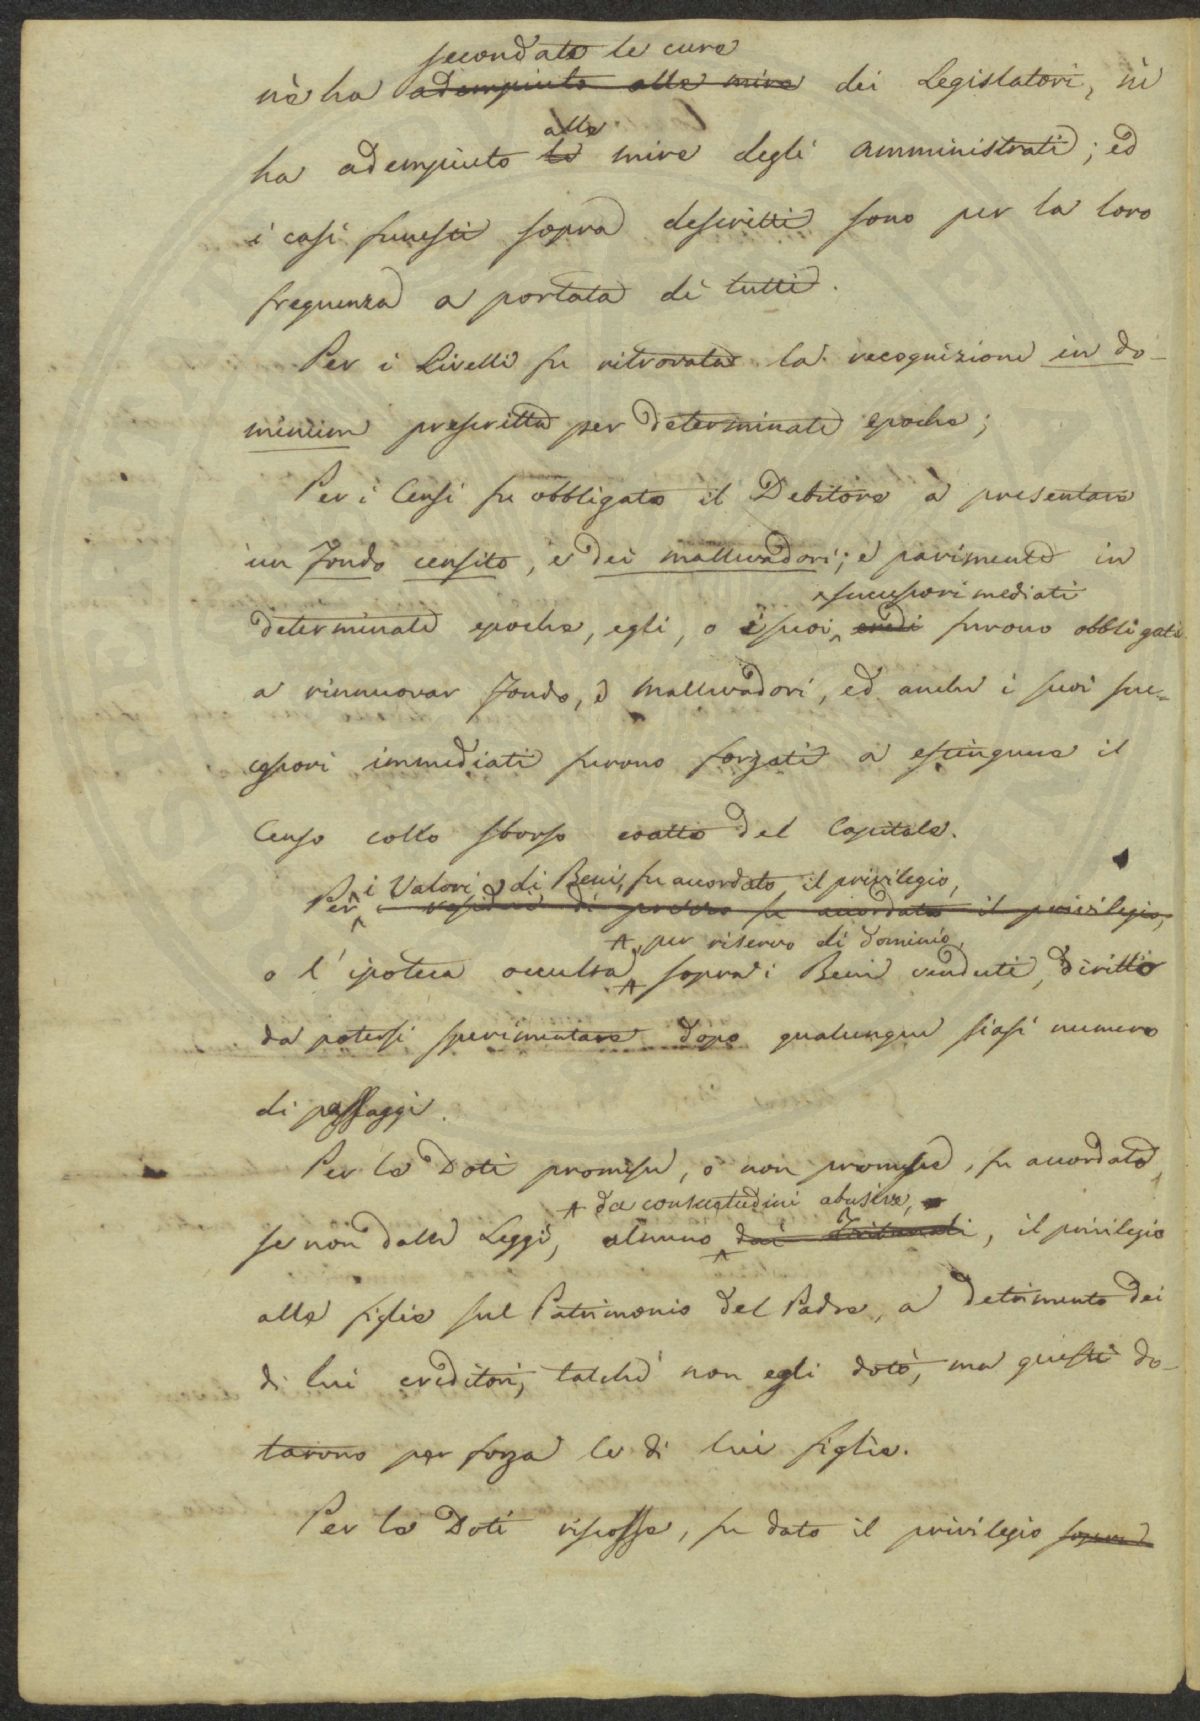 secondato le cure
nè ha adempiuto alle mire dei Legislatori, nè
alle
ha adempiuto le mire degli amministrati; ed
i casi funesti sopra descritti sono per la loro
frequenza a portata di tutti.
Per i Livelli fu ritrovata la recognizione in do-
minium prescritta per determinate epoche;
Per i Censi fu obbligato il Debitore a presentare
un fondo censito, e dei mallevadori; e parimente in
successori mediati
determinate epoche, egli, o i suoi eredi furono obbligati
a rinnuovar fondo, e mallevadori, ed anche i suoi suc-
cessori immediati furono forzati a estinguere il
Censo collo sborso coatto del Capitale.
i Valori di Beni, fu accordato il privilegio,
Per i residui di prezzo fu accordato il privilegio,
per riservo di dominio,
o l'ipoteca occulta sopra i Beni venduti, diritto
da potersi sperimentare dopo qualunque siasi numero
di passaggi.
Per le Doti promesse, o non promesse, fu accordato
da consuetudini abusive,
se non dalle Leggi, almeno dai Tribunali, il privilegio
alle figlie sul Patrimonio del Padre, a detrimento dei
di lui creditori, talchè non egli dotò, ma questi do-
tarono per forza le di lui figlie.
Per le Doti riscosse, fu dato il privilegio sopra